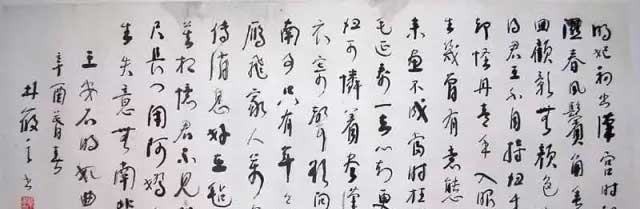 明妃初出漢宮時
濕春風鬢角垂
回顧影無顏色
得君王不自持歸來
却怪丹青手入眼
生幾曾有意態
来畫不成當時枉
毛延壽一去心知更
歸可憐着盡漢
衣寄聲欲問
南事只有年年
雁飛家人萬
傳消息好在氈
莫相憶君不見
尺長門閉阿嬌
生失意無南北
王安石明妃曲
辛酉暮春
林之書